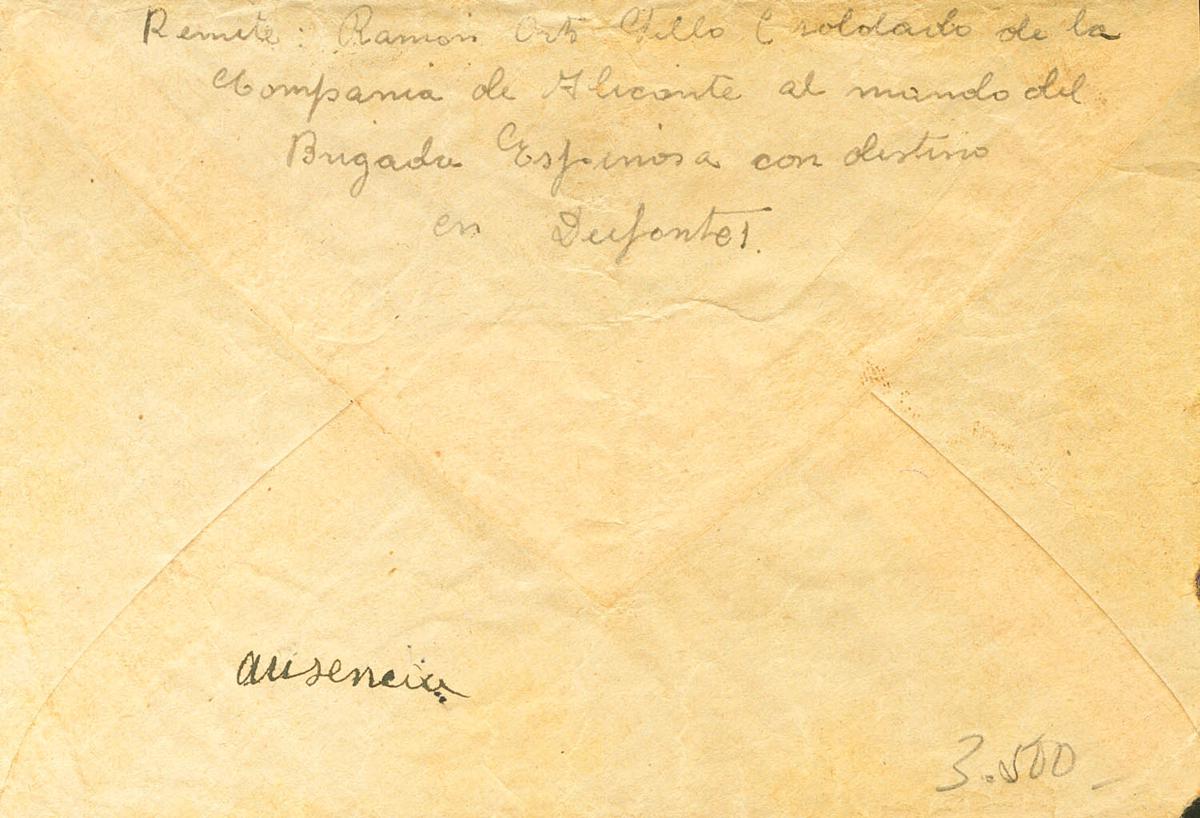 Remite: Ramon Orts Tello (soldado de la
Compania de Alicante al mando del
Brigada Espinosa con destino
en Deifontes.
ausencia
3.500